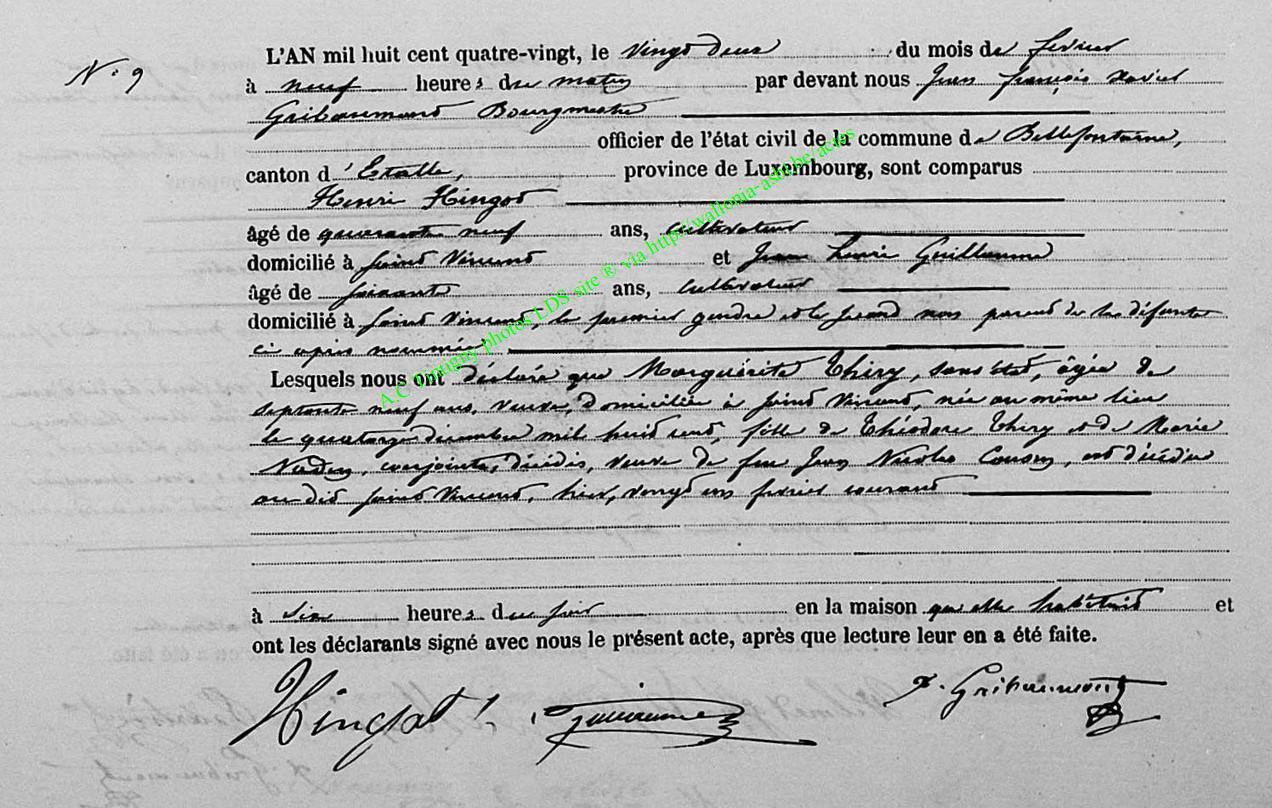 N.° 9
L'AN mil huit cent quatre-vingt, le vingt deux du mois de février
à neuf heures du matin par devant nous Jean François Xavier
Gribaumont Bourgmestre
officier de l'état civil de la commune de Bellefontaine,
canton d'Etalle, province de Luxembourg, sont comparus
Henri Hingot
âgé de quarante neuf ans, cultivateur
domicilié à Saint Vincent et Jean Guillaume
âgé de soixante ans, cultivateur
domicilié à Saint Vincent, le premier gendre et le second non parent de la défunte
ci après nommée
Lesquels nous ont déclaré que Marguérite Thiry, sans état, âgée de
septante neuf ans, veuve, domiciliée à Saint Vincent, née au même lieu
le quatorze décembre mil huit cent, fille de Théodore Thiry et de Marie
conjoints, décédés, veuve de feu Jean Nicolas est décédée
au dit Saint Vincent, hier, vingt un février courant
à six heures du soir en la maison qu'elle habitait et
ont les déclarants signé avec nous le présent acte, après que lecture leur en a été faite.
Hingot Guillaume Gribaumont
A.C Vintigny photos LDS site ® via http://wallonia-asbl.be/actes